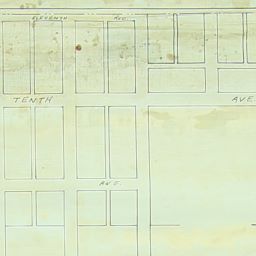 ELEVENTH AVE.
TENTH AVE.
AVE.